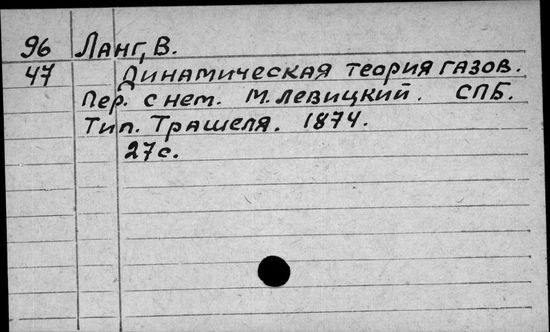 96 Ланг, В.
47 Динамическая теория газов.
Пер. с нем. М. Левицкий. СПБ.
Тип. Трашеля. 1874.
27с.